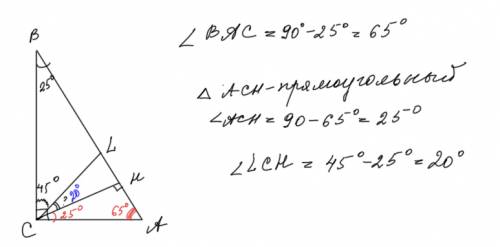 ∠BAC = 90° - 25° = 65°
△ ACH - прямоугольный
∠ACH = 90 - 65° = 25°
∠LCH = 45° - 25° = 20°
B
25°
L
H
45°
? 20°
25°
65°
C
A